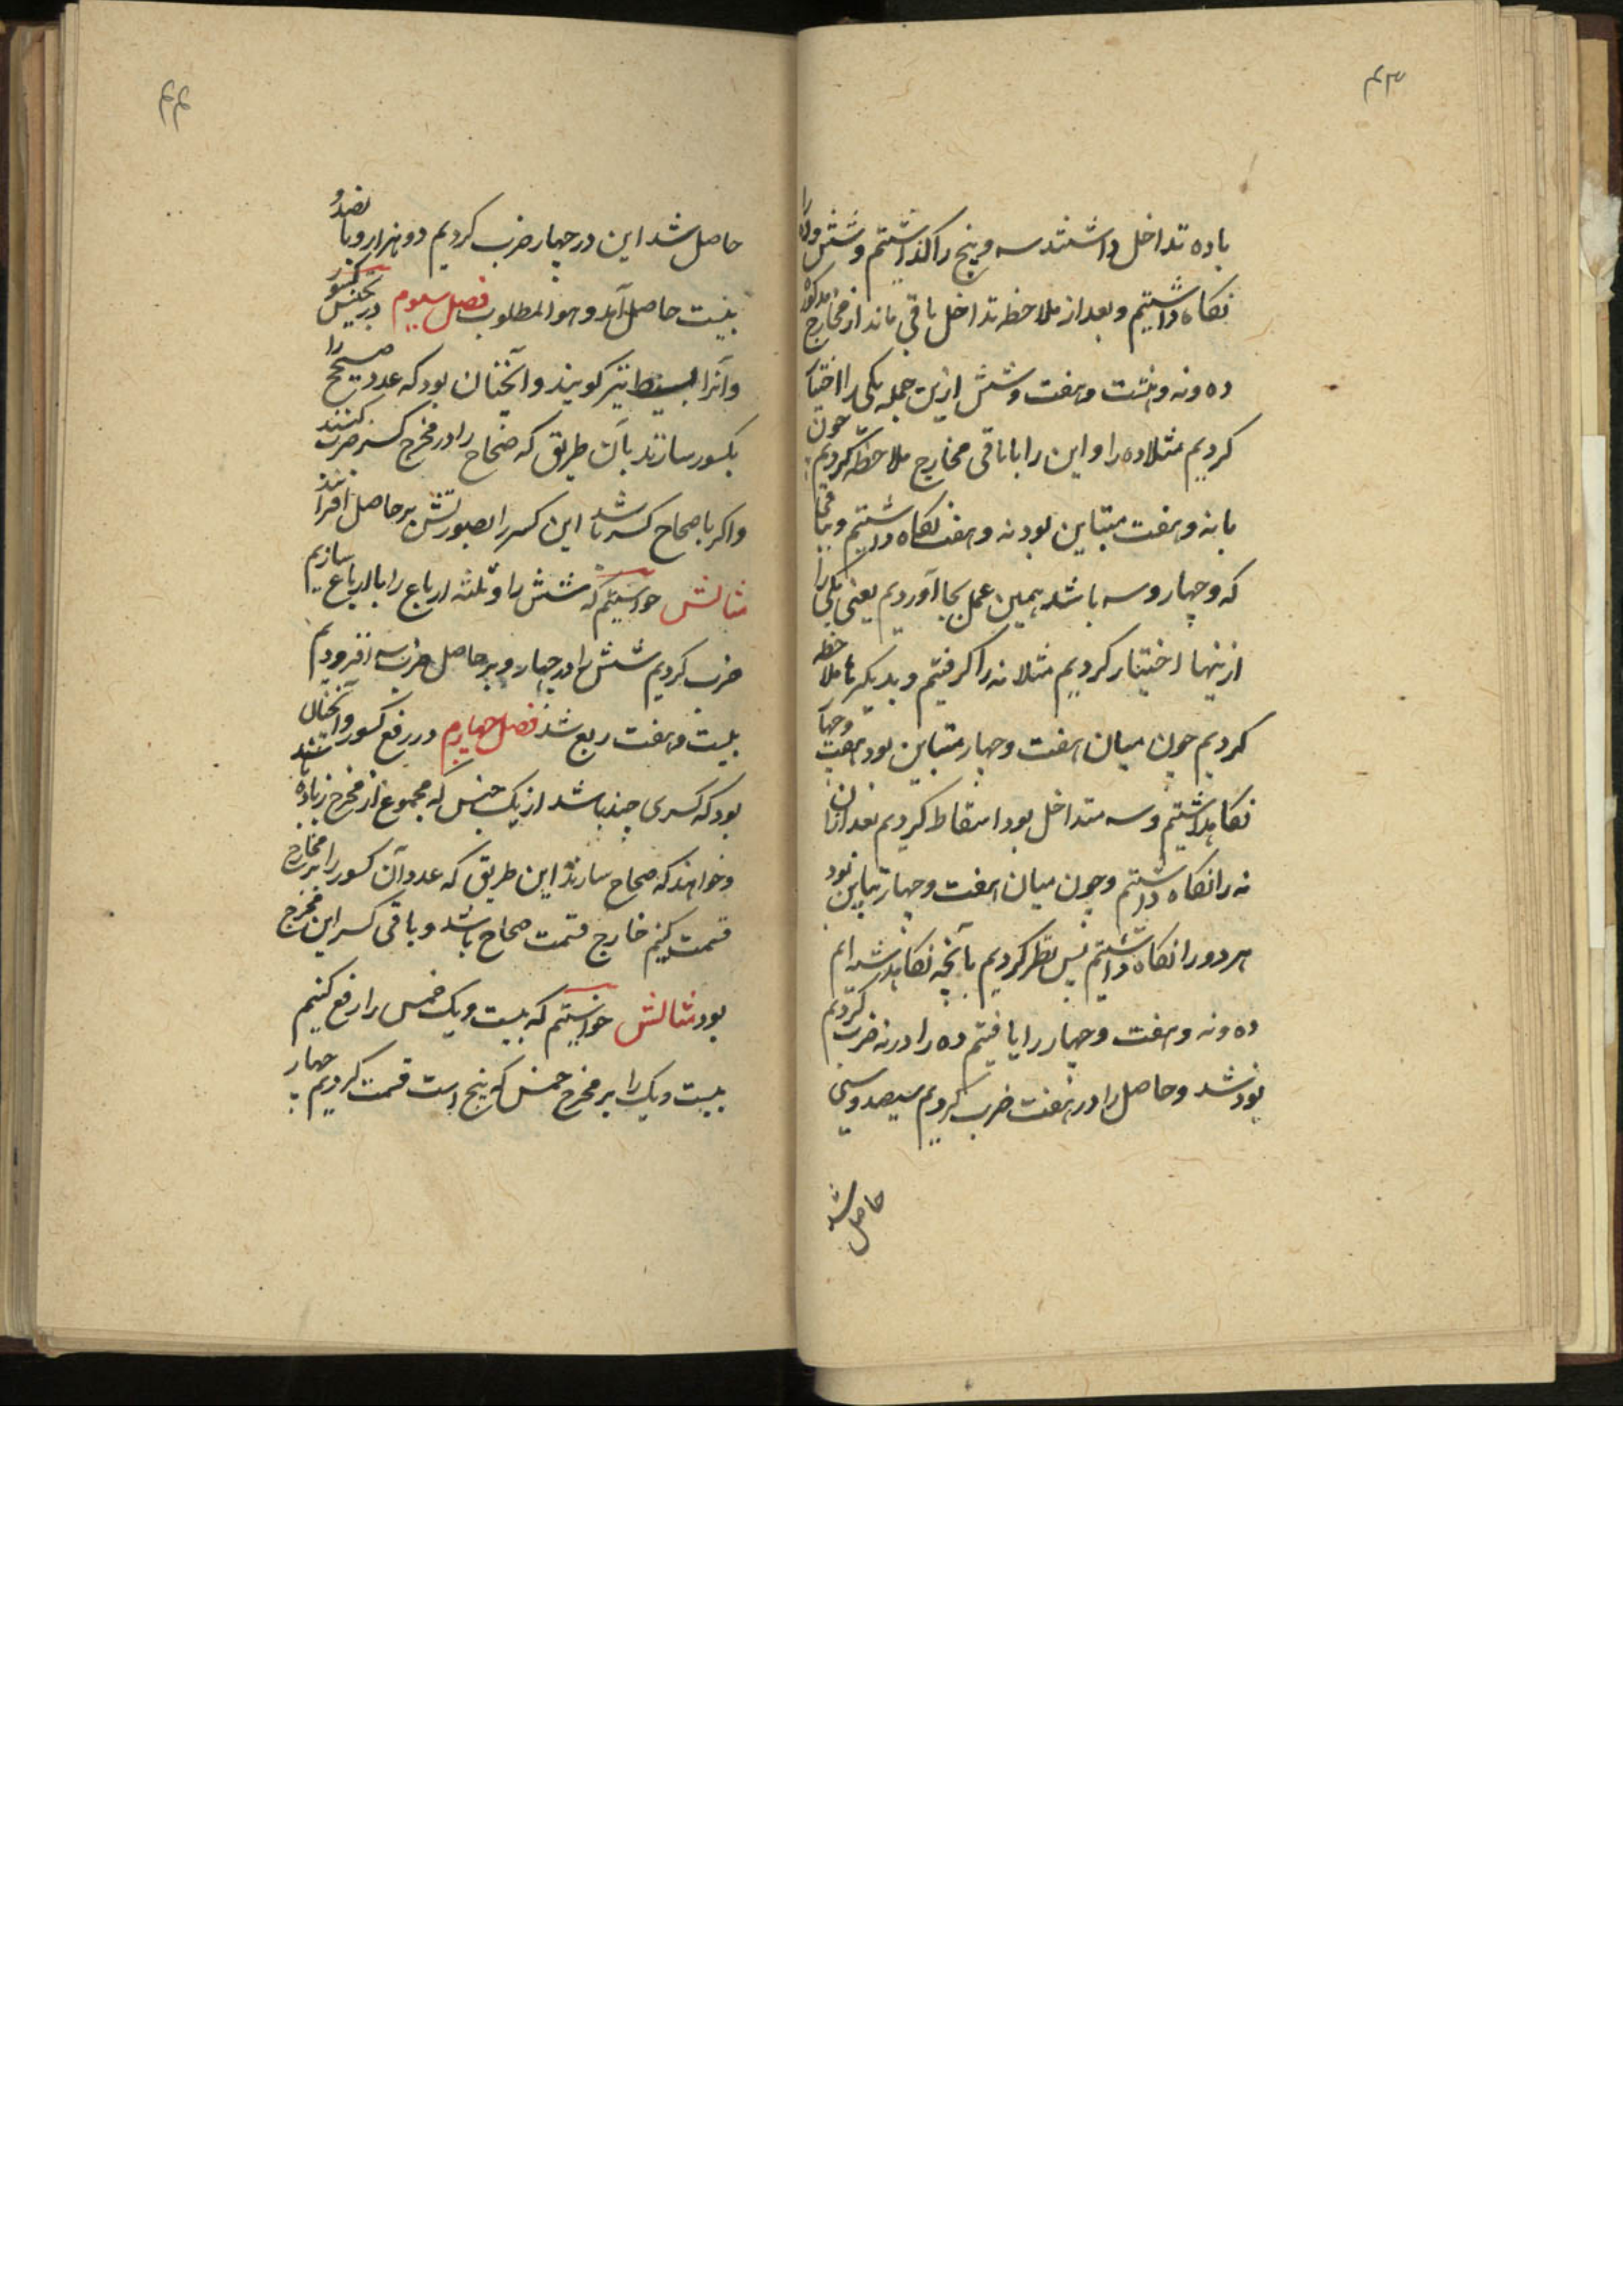 ۴۳
با ده تداخل داشتند سه و پنج را کذاشتیم و شش و ده را
نکاه داشتیم و بعد از ملاحظه تداخل باقی ماند از مخارج مذکوره
ده و نه و هشت و هفت و شش ازین جمله یکی را اختیا
کردیم مثلا ده را و این را با باقی مخارج ملاحظه کردیم چون
با نه و هفت متباین بود نه و هفت نکاه داشتیم و با
که و چهار و سه باشد همین عمل بجا آوردیم یعنی یکی را
ازینها اختیار کردیم مثلا نه را کرفتیم و بدیکرها ملاحظه
کردیم چون میان هفت و چهار متباین بود هفت و چها
نکاهداشتیم و سه متداخل بود اسقاط کردیم بعد ازان
نه را نکاه داشتیم و چون میان هفت و چهار تباین بود
هر دو را نکاه داشتیم پس نظر کردیم بآنچه نکاهداشته ایم
ده و نه و هفت و چهار را یافتیم ده را در نه ضرب کردیم
نود شد و حاصل را در هفت ضرب کردیم سیصد و سی
حاصل شد
۴۴
حاصل شد این در چهار ضرب کردیم دو هزار و پانصد و
بیست حاصل آمد و هو المطلوب فصل سیوم در تجنیس کسور
و آنرا بسیط نیز کویند و آنچنان بود که عدد صحیح را
بکسور سازند بآن طریق که صحاح را در مخرج کسر ضرب کنند
و اکر با صحاح کسر باشد این کسر را بصورتش بر حاصل افزایند
مثالش خواستیم که شش را و ثلثه ارباع را با ارباع سازیم
ضرب کردیم شش را در چهار و بر حاصل ضرب سه افزودیم
بیست و هفت ربع شد فصل چهارم در رفع کسور و آنچنان
بود که کسری چند باشد از یک جنس که مجموع از مخرج زیاده باشند
و خواهند که صحاح سازند این طریق که عدد آن کسور را بر مخارج
قسمت کنیم خارج قسمت صحاح باشد و باقی کسر این مخرج
بود مثالش خواستیم که بیست و یک خمس را رفع کنیم
بیست و یک را بر مخرج خمس که پنج است قسمت کردیم چهار